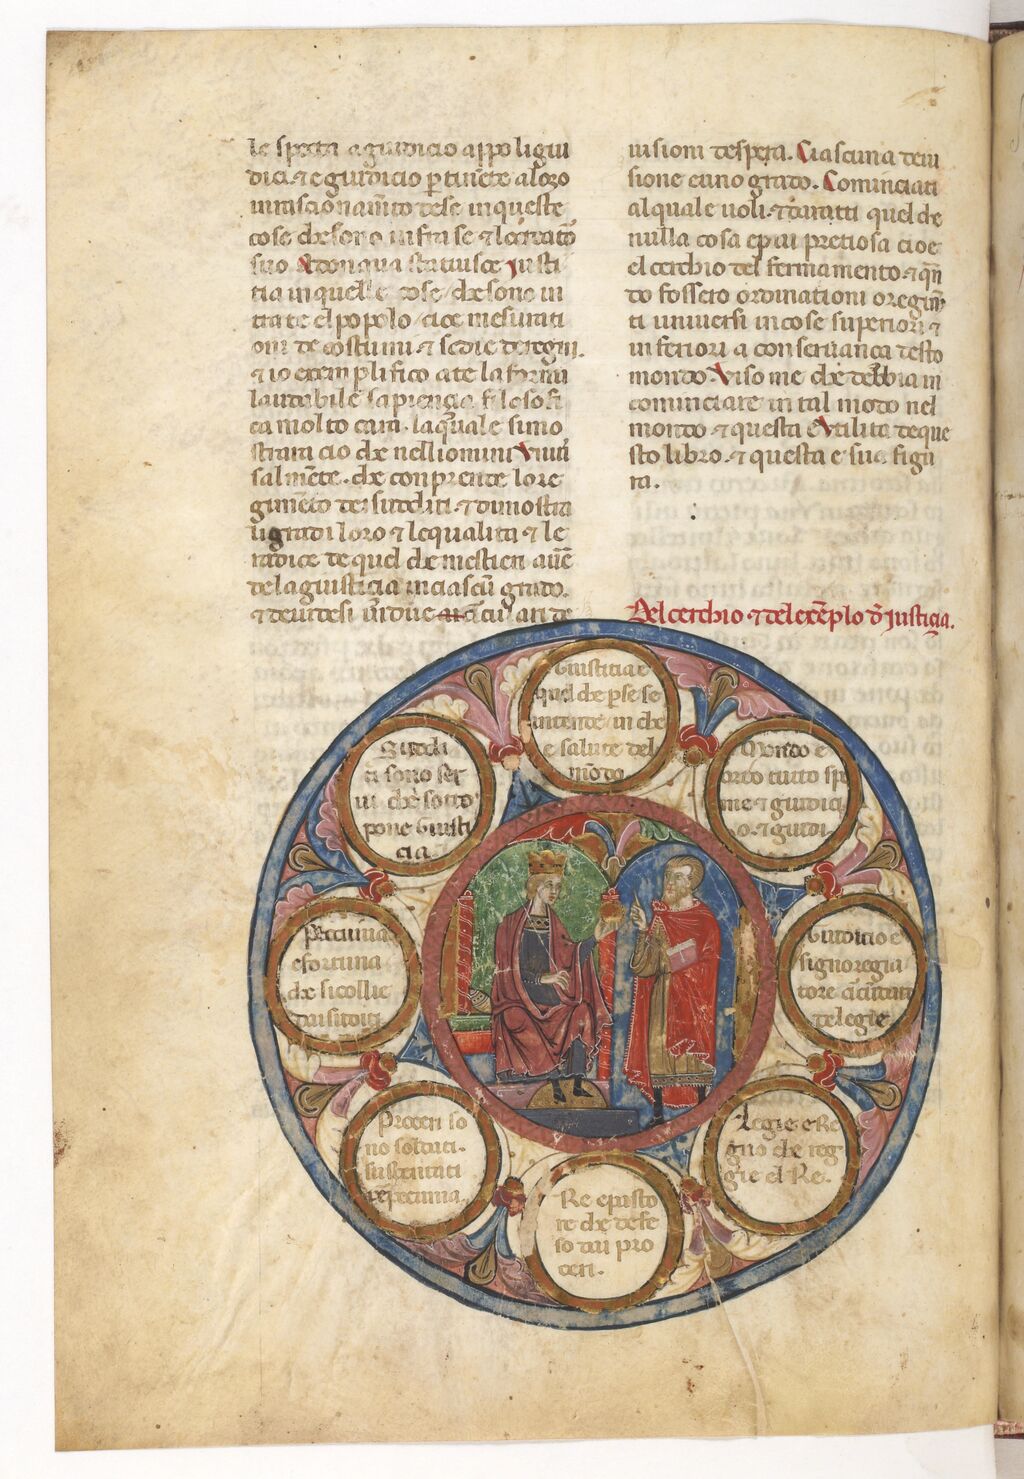 le specta a giudicio appo li giu
dici. ⁊ e giudicio p̱tinēte a loro
in rascionamēto de se in queste
cose che sono infra se ⁊
suo
tia in quelle cose che sono in
tra te el popolo cioe mesurati
oni de costumi ⁊ sedie de regni.
⁊ io exemplifico a te la forma
laudabile sapiencia filosofi
ca molto cara. la quale simo
strara cio che nelli omini
salmēte. che conprende lo re
gimēto dei subditi. ⁊ dimostra
li gradi loro ⁊ le qualita ⁊ le
radice de quel che mestieri
de la giusticia in ciascū grado.
uisioni de spera. Ciascuna deui
sione e uno grado. Cominciati
al quale uoli. ⁊ daratti quel de
nulla cosa e piu pretiosa cioe
el cerchio del fermamento. ⁊ qn̄
do fossero ordinationi o regim̄
ti uniuersi in cose superiori ⁊
inferiori a conseruanca desto
mondo. Viso me che debbia in
cominciare in tal modo nel
mondo. ⁊ questa e Vtilita de que
sto libro. ⁊ questa e sua figu
ra.
Del cerchio ⁊ del exēplo d̄ Justicia.
Giustitia e
quel che p̱ se se
intende in che
e salute del
mōdo
Mondo e
orto tutto
⁊ giudici
Giudicio e
signo regia
tore
de legie
Legie e Re
gno che reg
gie el Re.
Re e pasto
re che defe
so dai pro
ceri.
Proceri so
no soldati.
sustentati
p̱ pecunia.
Peccunia
e fortuna
che si collie
dai subditi
Subdi
ti sono ser
ui che sotto
pone Giusti
cia.